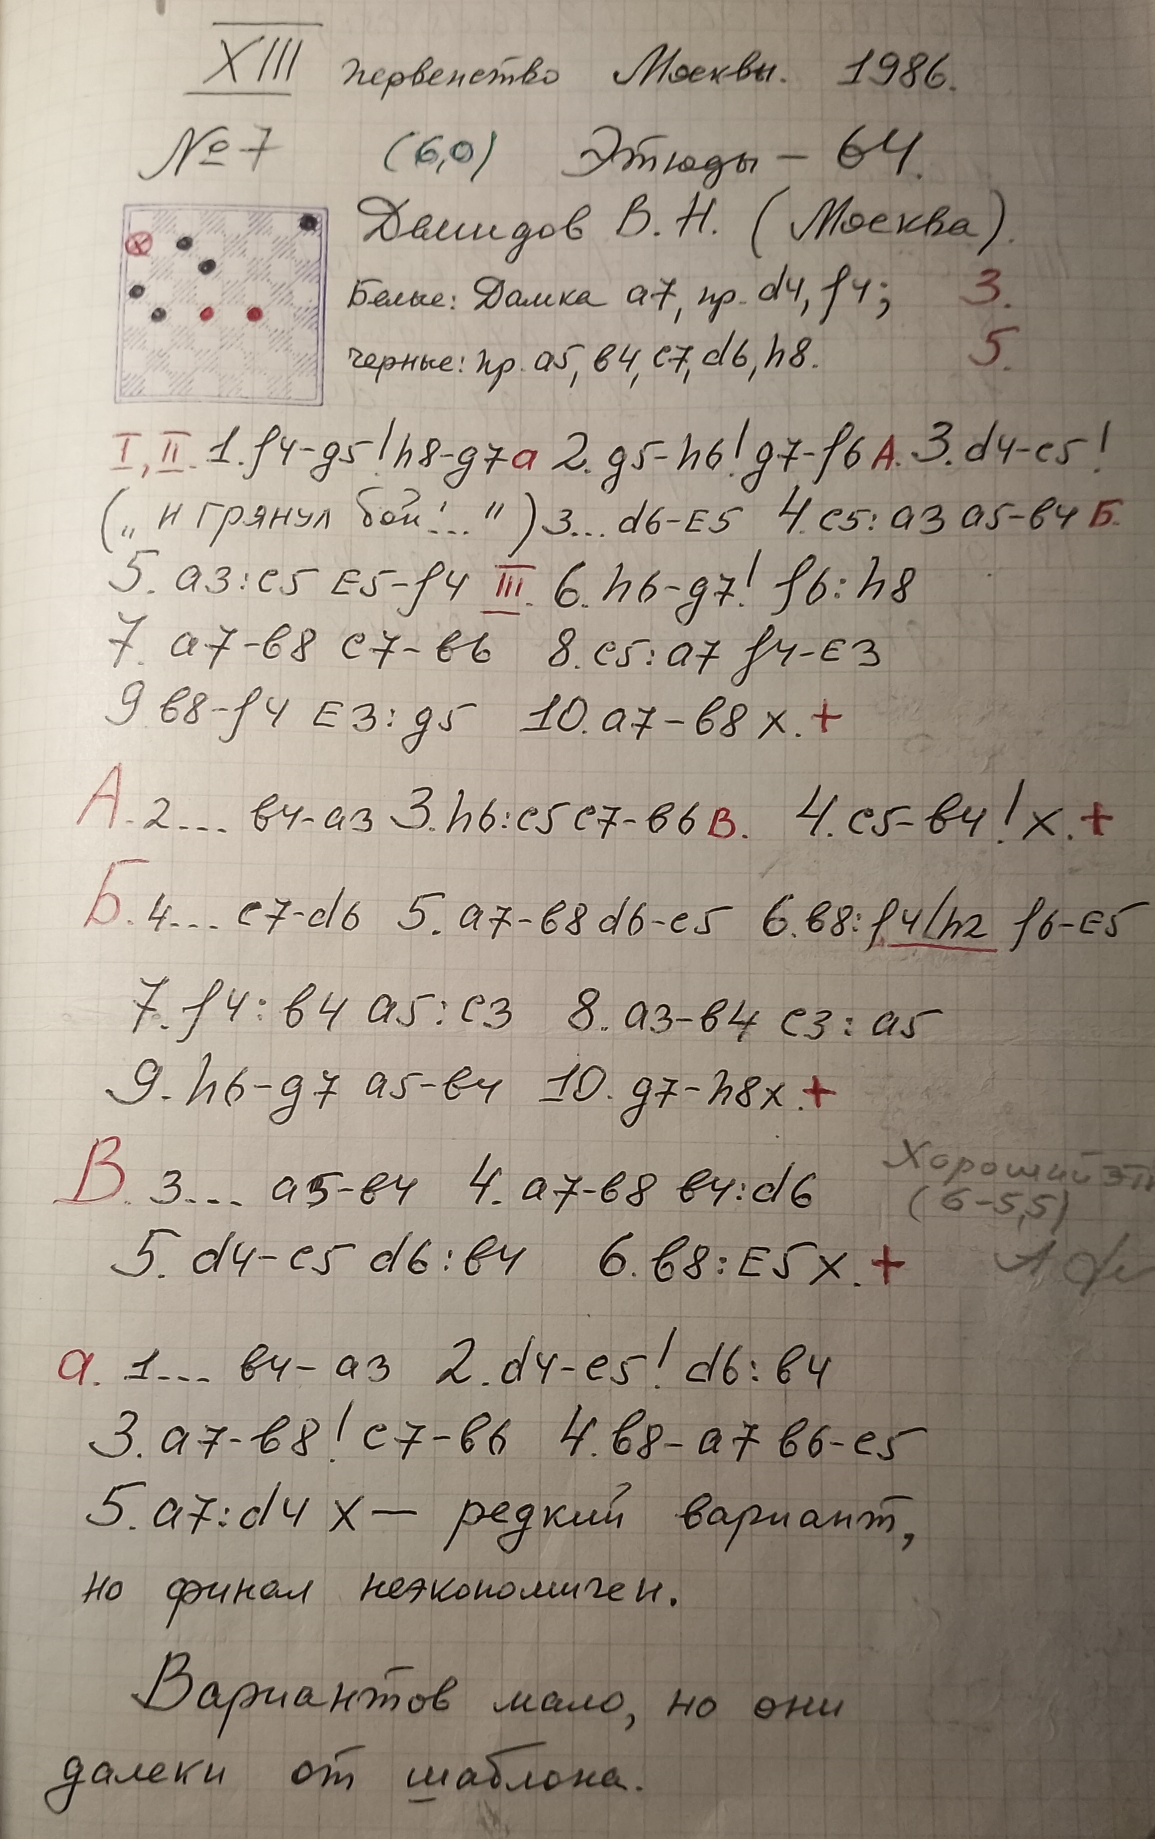 XIII первенство Москвы. 1986.
№ 7 (6,0) Этюды – 64.
Демидов В.Н. (Москва).
Белые: Дамка а7, пр. d4, f4; 3.
черные: пр. а5, в4, с7, d6, h8. 5.
I, II. 1. f4-g5! h8-g7 а 2. g5-h6! g7-f6 А. 3. d4-c5!
(„и грянул бой!..." ) 3... d6-E5 4. c5:a3 a5-в4 Б.
5. a3:c5 E5-f4 III. 6. h6-g7! f6:h8
7. a7-в8 c7-в6 8. c5:a7 f4-E3
9. в8-f4 E3:g5 10. a7-в8 x. +
А. 2... в4-a3 3. h6:c5 c7-в6 В. 4. c5-в4! x. +
Б. 4... c7-d6 5. a7-в8 d6-c5 6. в8:f4/h2 f6-E5
7. f4:в4 a5:c3 8. a3-в4 c3:a5
9. h6-g7 a5-в4 10. g7-h8x. +
В. 3... a5-в4 4. a7-в8 в4:d6
Хороший эт
(6-5,5)
5. d4-c5 d6:в4 6. в8:E5 x. +
а. 1... в4-a3 2. d4-c5! d6:в4
3. a7-в8! c7-в6 4. в8-a7 в6-c5
5. a7:d4 x — редкий вариант,
но финал неэкономичен.
Вариантов мало, но они
далеки от шаблона.